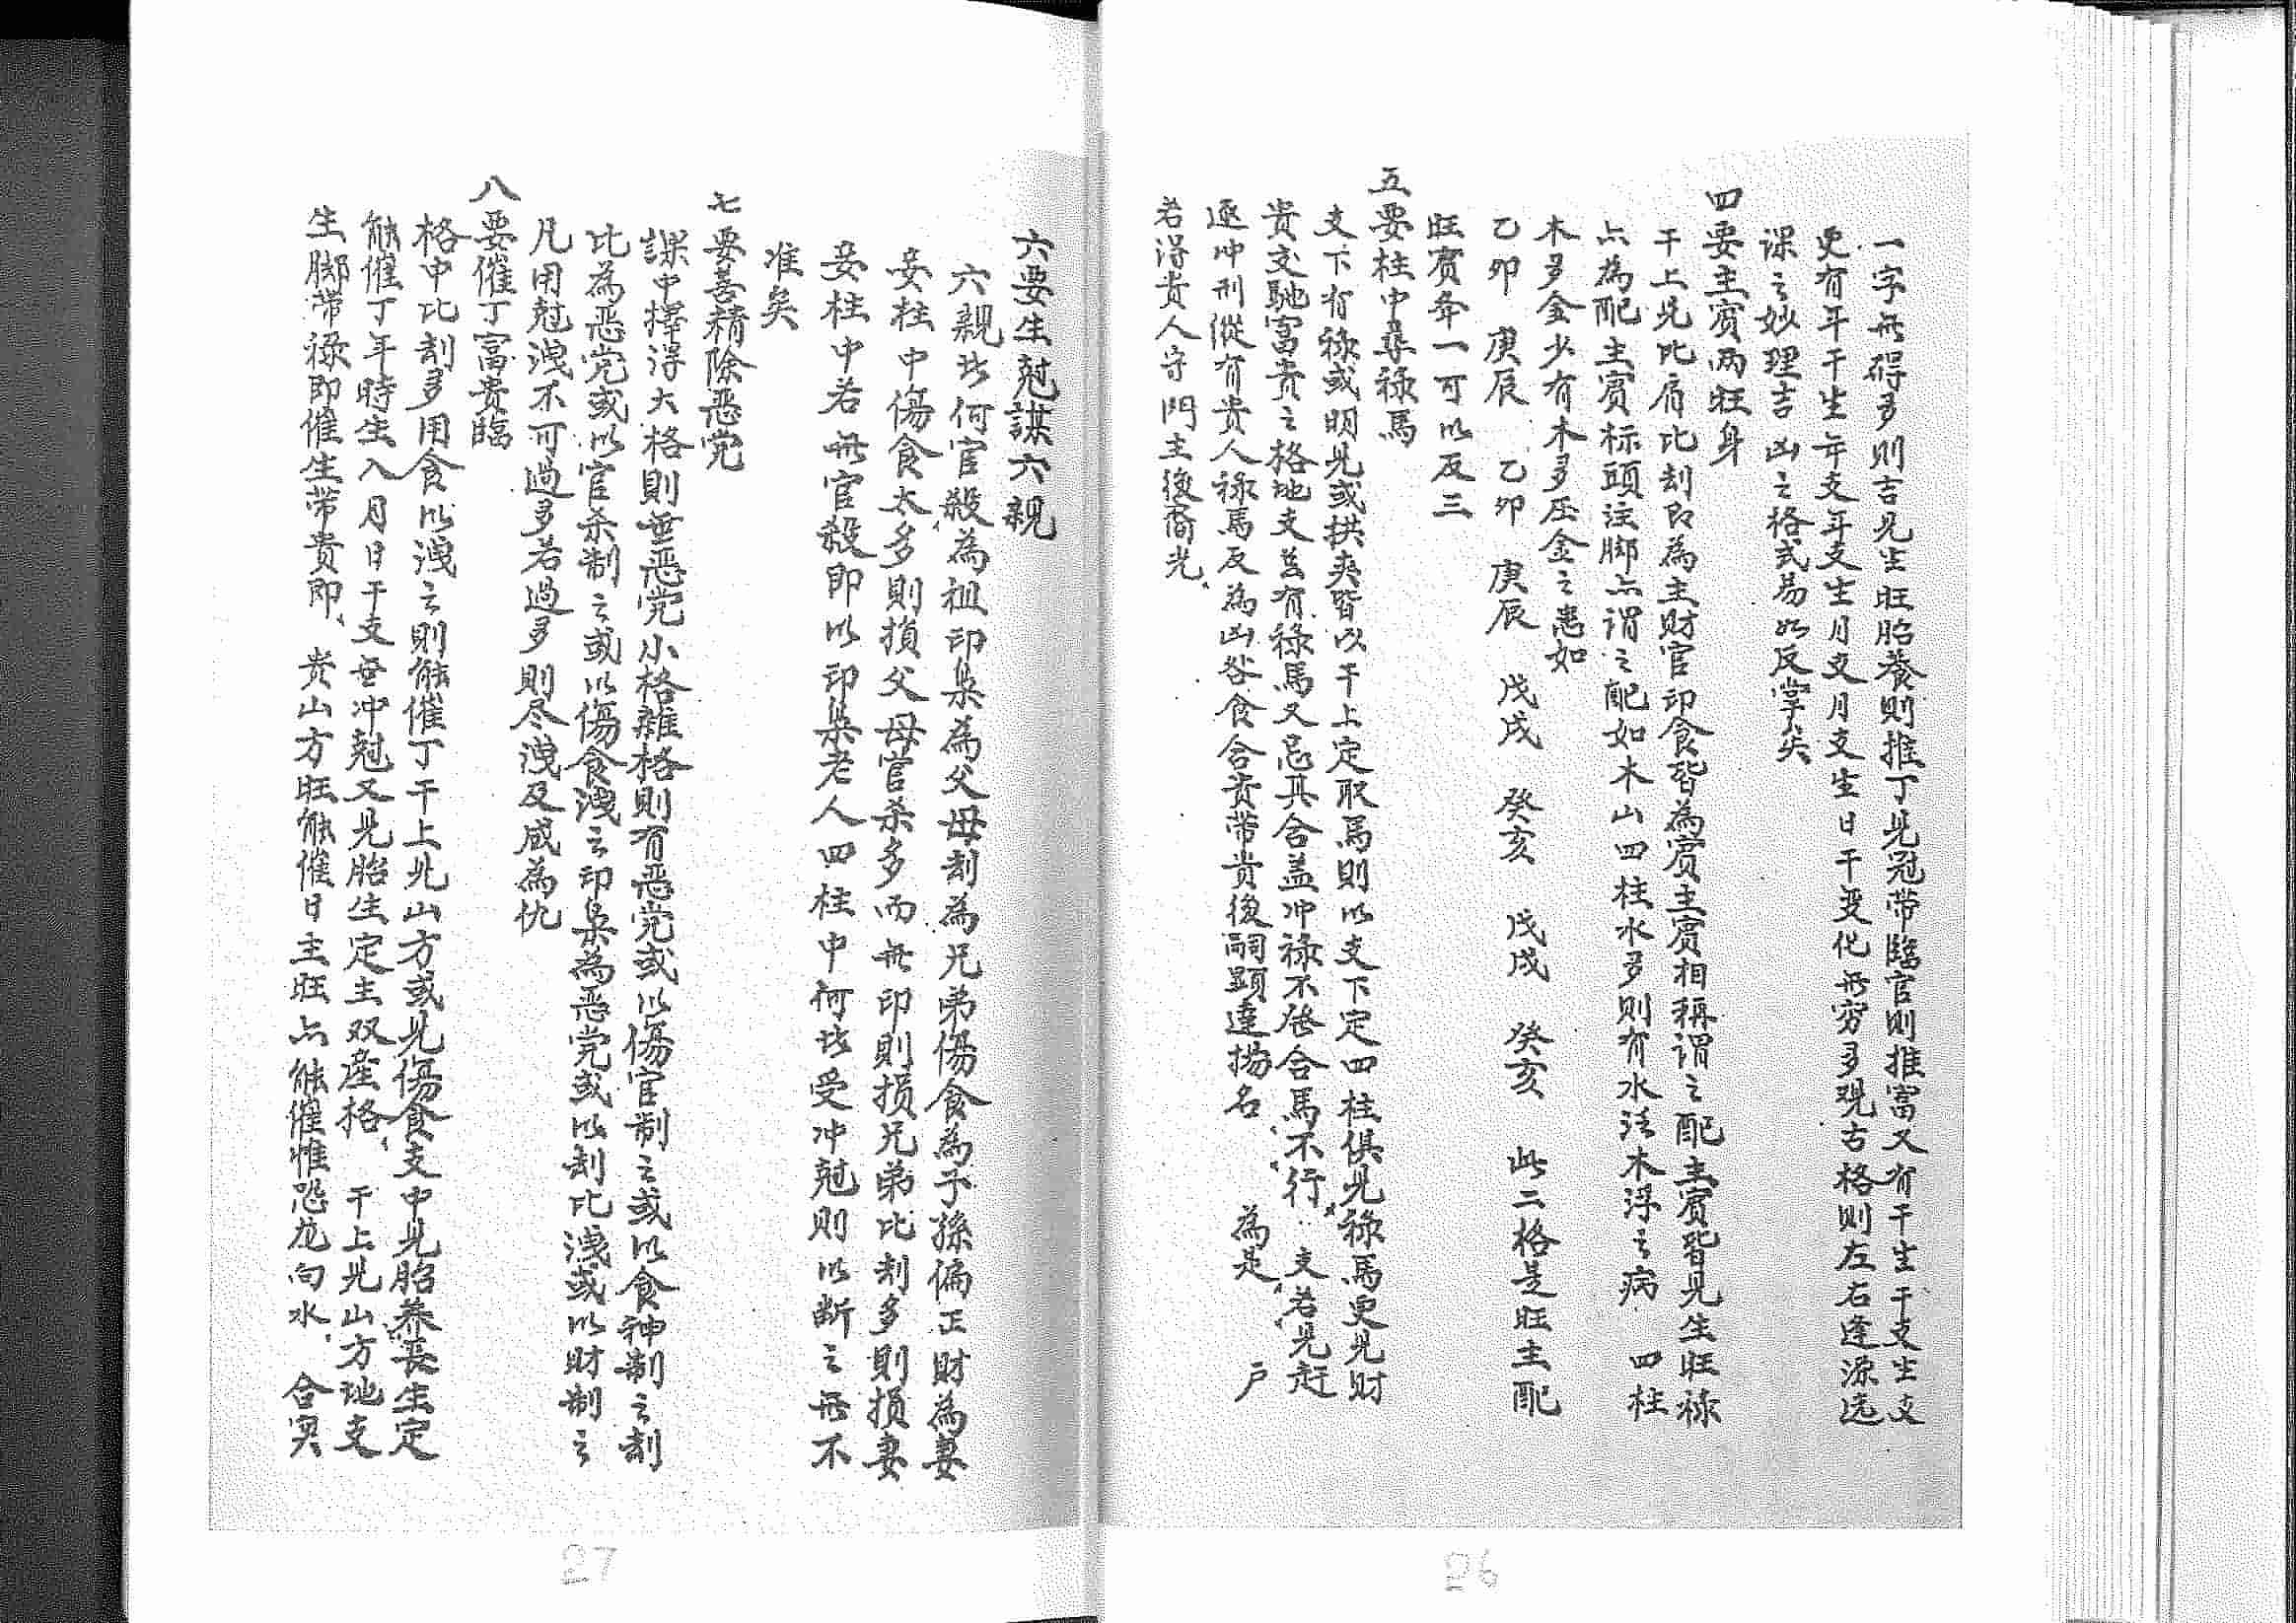 一字無碍多則吉見生旺胎養則推丁見冠帶臨官則推富又有干生干支生支
更有年干生年支年支生月支月支生日干变化無穷多观古格则左右逢源选
课之妙理吉凶之格式易如反掌矣
四要主賓两旺身
干上見比肩比刦即為主財官印食皆為賓主賓相稱謂之配主賓皆見生旺祿
点為配主賓标頭注脚点谓之配如木山四柱水多则有水泛木浮之病 四柱
木多金少有木多压金之患如
乙卯 庚辰 乙卯 庚辰 戊戌 癸亥 戊戌 癸亥 此二格是旺主配
旺賓舉一可以反三
五要柱中尋祿馬
支下有祿或明見或拱夹皆以干上定取馬則以支下定四柱俱見祿馬更見財
貴支馳富貴之格地支若有祿馬又忌其合盖冲祿不發合馬不行 支若見赶
逐冲刑縱有貴人祿馬反為凶咎食合貴带貴後嗣顯達揚名 為是 户
若得貴人守門主後裔光
六要生尅謀六親
六親比何官殺為祖印梟為父母刦為兄弟傷食為子孫偏正財為妻
妾柱中傷食太多則損父母官杀多而無印則损兄弟比刦多則損妻
妾柱中若無官殺即以印梟老人四柱中何比受冲尅则以断之無不
准矣
七要善精除恶党
課中擇得大格則無恶党小格雜格則有恶党或以傷官制之或以食神制之刦
比為恶党或以官杀制之或以傷食洩之印梟為恶党或以刦比洩或以財制之
凡用尅洩不可過多若過多則尽洩反感為仇
八要催丁富貴臨
格中比刦多用食以洩之則能催丁干上見山方或見傷食支中見胎养長生定
能催丁年時生入月日干支無冲尅又見胎生定主双產格 干上見山方地支
生脚带祿即催生带貴即 貴山方旺能催日主旺点能催惟恐龙向水 合冥
27
26